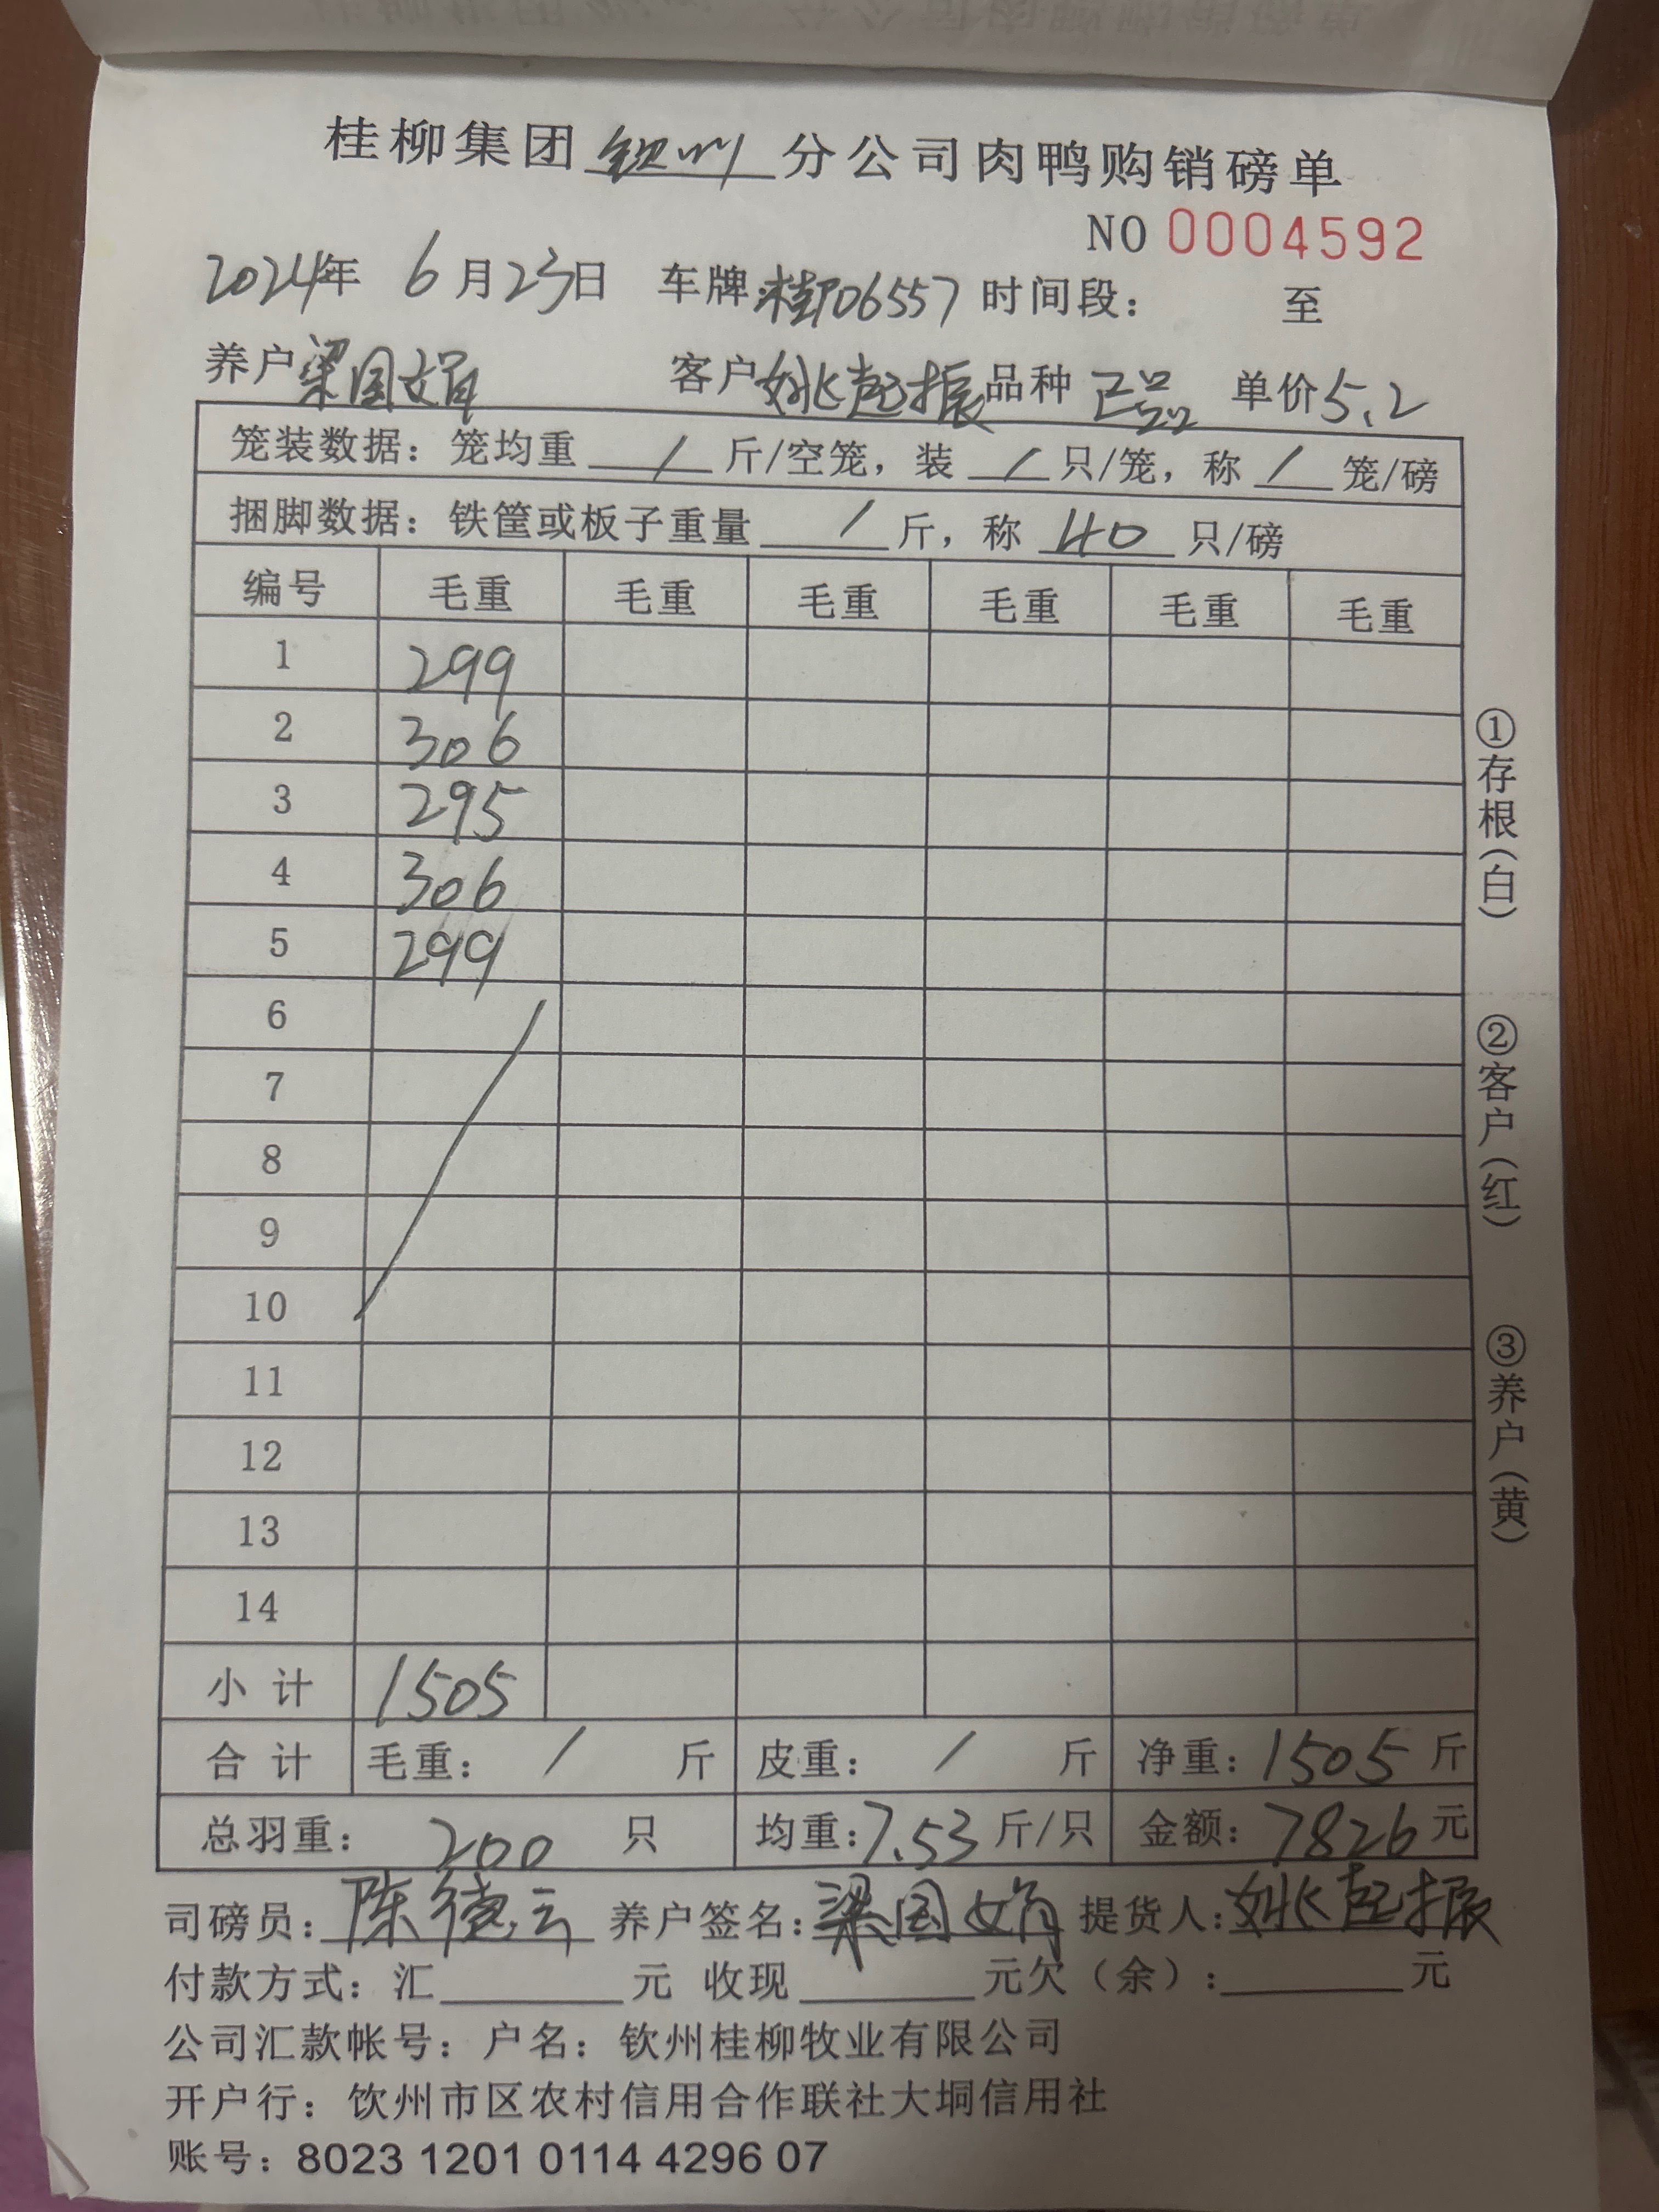 桂柳集团钦州分公司肉鸭购销磅单
NO 0004592
2024年 6月23日 车牌:桂P06557 时间段： 至
养户梁国娟 客户姚起振 品种 正品 单价5.2
笼装数据：笼均重 / 斤/空笼，装 / 只/笼，称 / 笼/磅
捆脚数据：铁筐或板子重量 / 斤，称 40 只/磅
编号 毛重 毛重 毛重 毛重 毛重 毛重
1 299
2 306
3 295
4 306
5 299
6
7
8
9
10
11
12
13
14
小计 1505
合计 毛重： / 斤 皮重： / 斤 净重：1505 斤
总羽重： 200 只 均重：7.53 斤/只 金额：7826 元
司磅员：陈德云 养户签名：梁国娟 提货人：姚起振
付款方式：汇______元 收现______元欠（余）：______元
公司汇款帐号：户名：钦州桂柳牧业有限公司
开户行：钦州市区农村信用合作联社大垌信用社
账号：8023 1201 0114 4296 07
①存根（白）
②客户（红）
③养户（黄）